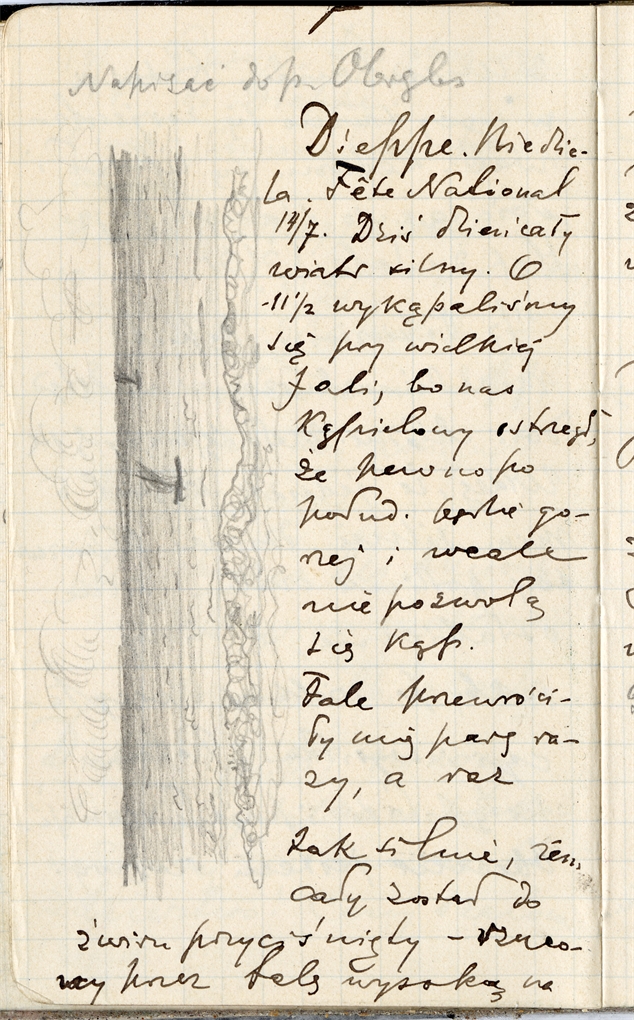 Napisać do p. Obrębs
Dieppe. Niedzie-
la. Fête National
14/7. Dziś dzień cały
wiatr silny. O
11 1/2 wykąpaliśmy
się przy wielkiej
fali, bo nas
Kąpielowy ostrzegł,
że pewno po
połud. będzie go-
rzej i wcale
nie pozwolą
się kąp.
Fale przewróci-
ły mię parę ra-
zy, a raz
tak silnie, żem
cały został do
żwiru przyciśnięty - rzuco-
ny przez falę wysoką na